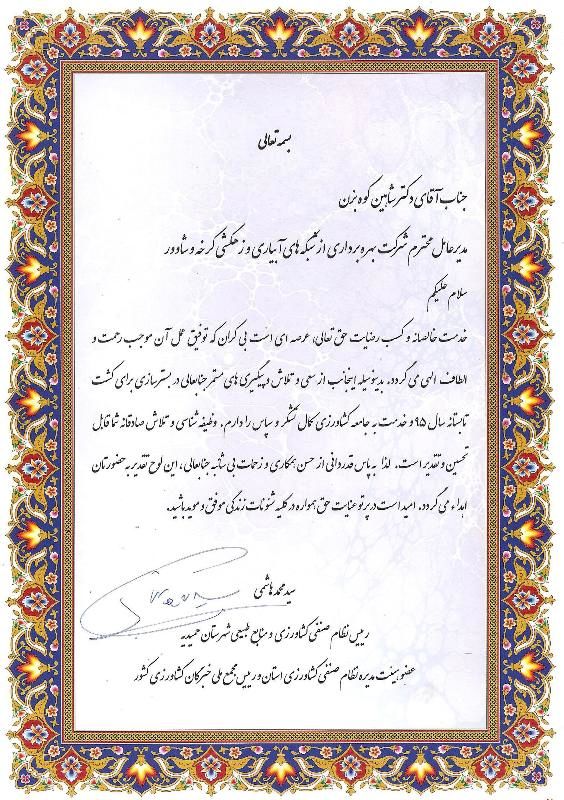 بسمه تعالی
جناب آقای دکتر شاهین کوه بزن
مدیر عامل محترم شرکت بهره برداری از شبکه های آبیاری و زهکشی کرخه و شاوور
سلام علیکم
خدمت خالصانه و کسب رضایت حق تعالی، عرصه ای است بی کران که توفیق عمل آن موجب رحمت و
الطاف الهی می گردد. بدینوسیله اینجانب از سعی و تلاش و پیگیری های مستمر جنابعالی در بسترسازی برای کشت
تابستانه سال ۹۵ و خدمت به جامعه کشاورزی کمال تشکر و سپاس را دارم. وظیفه شناسی و تلاش صادقانه شما قابل
تحسین و تقدیر است. لذا به پاس قدردانی از حسن همکاری و زحمات بی شائبه جنابعالی، این لوح تقدیر به حضورتان
اهداء می گردد. امید است در پرتو عنایت حق همواره در کلیه شئونات زندگی موفق و موید باشید.
سید محمد هاشمی
رییس نظام صنفی کشاورزی و منابع طبیعی شهرستان حمیدیه
عضو هیئت مدیره نظام صنفی کشاورزی استان و رییس مجمع ملی خبرگان کشاورزی کشور